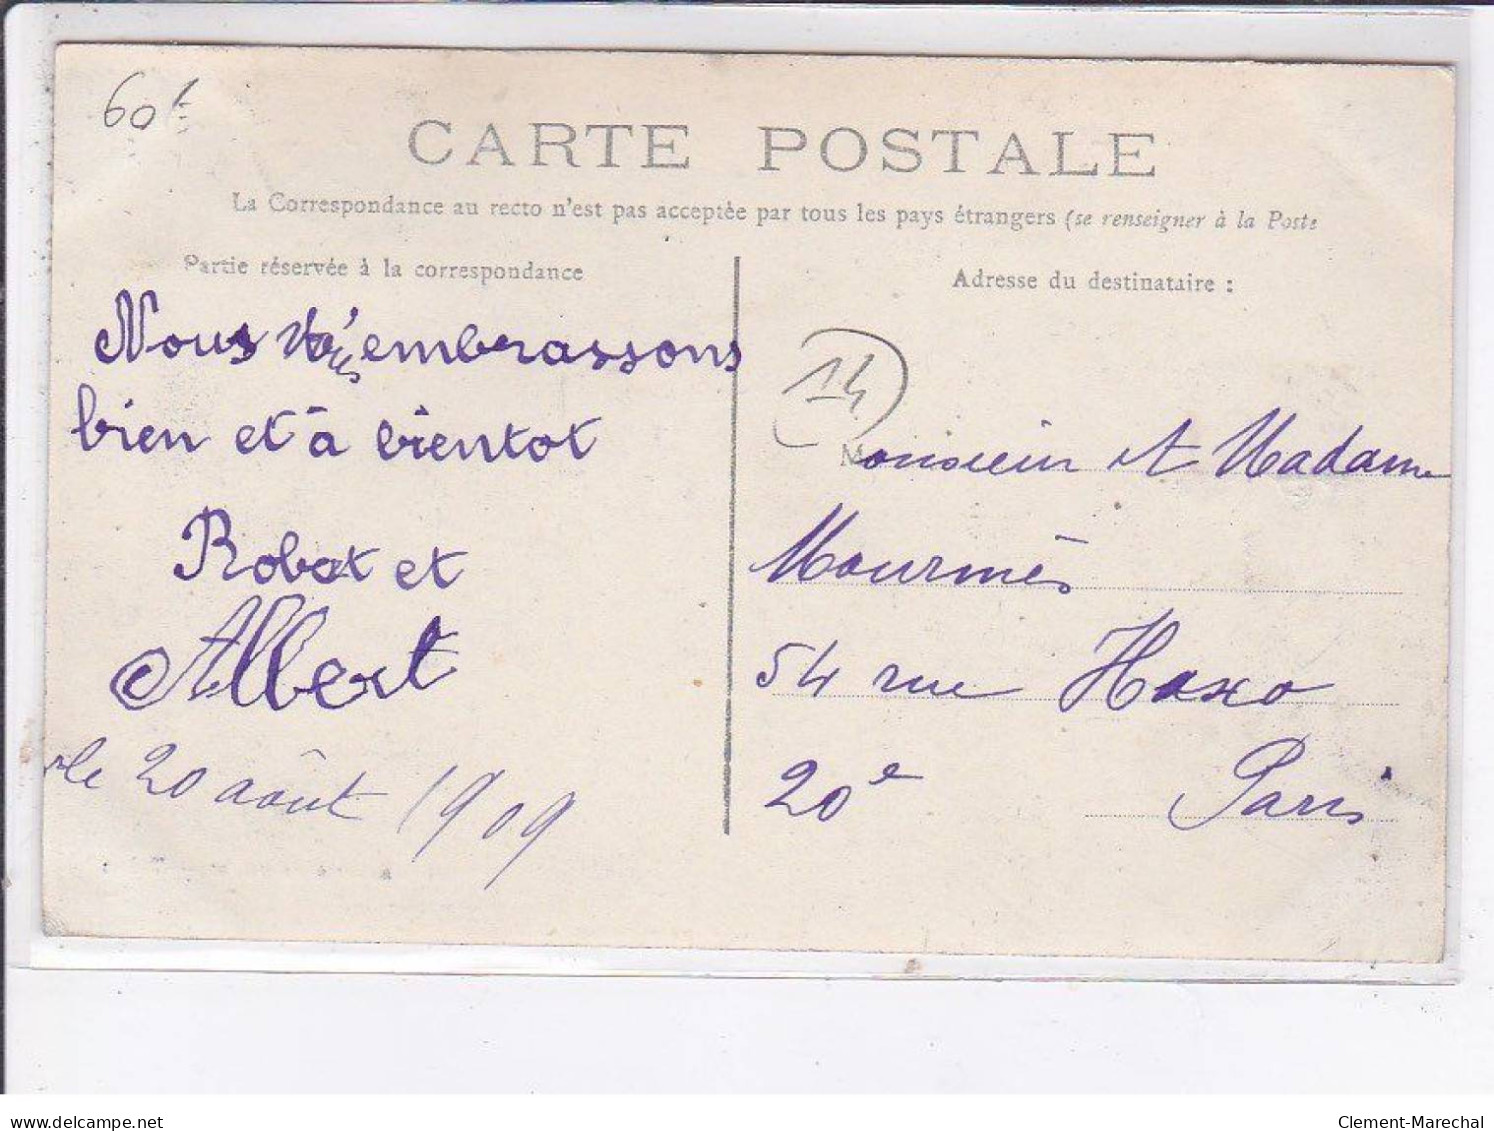 60f
CARTE POSTALE
La Correspondance au recto n'est pas acceptée par tous les pays étrangers (se renseigner à la Poste
Partie réservée à la correspondance
Nous embrassons
bien et à bientot
Robert et
Albert
le 20 août 1909
Adresse du destinataire :
14
Monsieur et Madame
Mourmès
54 rue Haxo
20e Paris
delcampe.net
Clement-Marechal